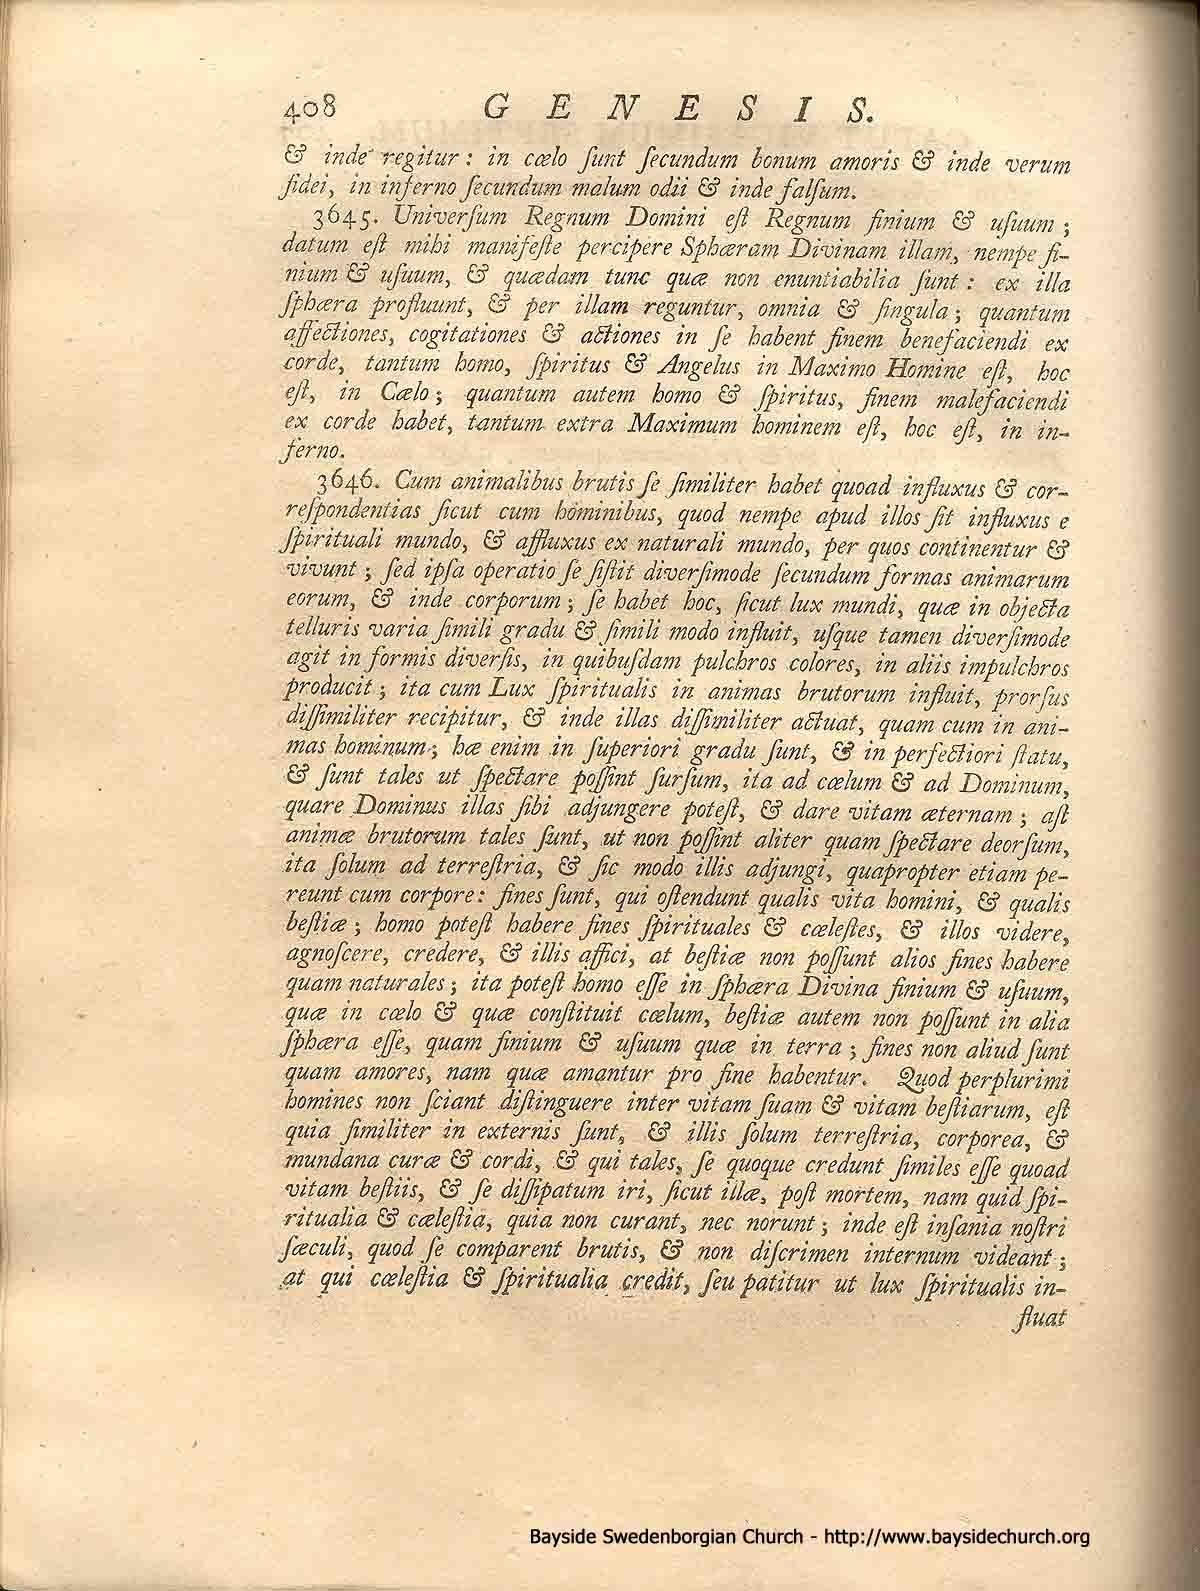 408 GENESIS.
& inde regitur: in cœlo ſunt ſecundum bonum amoris & inde verum
fidei, in inferno ſecundum malum odii & inde falſum.
3645. Univerſum Regnum Domini eſt Regnum finium & uſuum;
datum eſt mihi manifeſte percipere Sphæram Divinam illam, nempe fi-
nium & uſuum, & quædam tunc quæ non enuntiabilia ſunt: ex illa
ſphæra profluunt, & per illam reguntur, omnia & ſingula; quantum
affectiones, cogitationes & actiones in ſe habent finem benefaciendi ex
corde, tantum homo, ſpiritus & Angelus in Maximo Homine eſt, hoc
eſt, in Cœlo; quantum autem homo & ſpiritus, finem malefaciendi
ex corde habet, tantum extra Maximum hominem eſt, hoc eſt, in in-
ferno.
3646. Cum animalibus brutis ſe ſimiliter habet quoad influxus & cor-
reſpondentias ſicut cum hominibus, quod nempe apud illos ſit influxus e
ſpirituali mundo, & affluxus ex naturali mundo, per quos continentur &
vivunt; ſed ipſa operatio ſe ſiſtit diverſimode ſecundum formas animarum
eorum, & inde corporum; ſe habet hoc, ſicut lux mundi, quæ in objecta
telluris varia ſimili gradu & ſimili modo influit, uſque tamen diverſimode
agit in formis diverſis, in quibuſdam pulchros colores, in aliis impulchros
producit; ita cum Lux ſpiritualis in animas brutorum influit, prorſus
diſſimiliter recipitur, & inde illas diſſimiliter actuat, quam cum in ani-
mas hominum; hæ enim in ſuperiori gradu ſunt, & in perfectiori ſtatu,
& ſunt tales ut ſpectare poſſint ſurſum, ita ad cœlum & ad Dominum,
quare Dominus illas ſibi adjungere poteſt, & dare vitam æternam; aſt
animæ brutorum tales ſunt, ut non poſſint aliter quam ſpectare deorſum,
ita ſolum ad terreſtria, & ſic modo illis adjungi, quapropter etiam pe-
reunt cum corpore: fines ſunt, qui oſtendunt qualis vita homini, & qualis
beſtiæ; homo poteſt habere fines ſpirituales & cœleſtes, & illos videre,
agnoſcere, credere, & illis affici, at beſtiæ non poſſunt alios fines habere
quam naturales; ita poteſt homo eſſe in ſphæra Divina finium & uſuum,
quæ in cœlo & quæ conſtituit cœlum, beſtiæ autem non poſſunt in alia
ſphæra eſſe, quam finium & uſuum quæ in terra; fines non aliud ſunt
quam amores, nam quæ amantur pro fine habentur. Quod perplurimi
homines non ſciant diſtinguere inter vitam ſuam & vitam beſtiarum, eſt
quia ſimiliter in externis ſunt, & illis ſolum terreſtria, corporea, &
mundana curæ & cordi, & qui tales, ſe quoque credunt ſimiles eſſe quoad
vitam beſtiis, & ſe diſſipatum iri, ſicut illæ, poſt mortem, nam quid ſpi-
ritualia & cœleſtia, quia non curant, nec norunt; inde eſt inſania noſtri
ſæculi, quod ſe comparent brutis, & non diſcrimen internum videant;
at qui cœleſtia & ſpiritualia credit, ſeu patitur ut lux ſpiritualis in-
fluat
Bayside Swedenborgian Church - http://www.baysidechurch.org